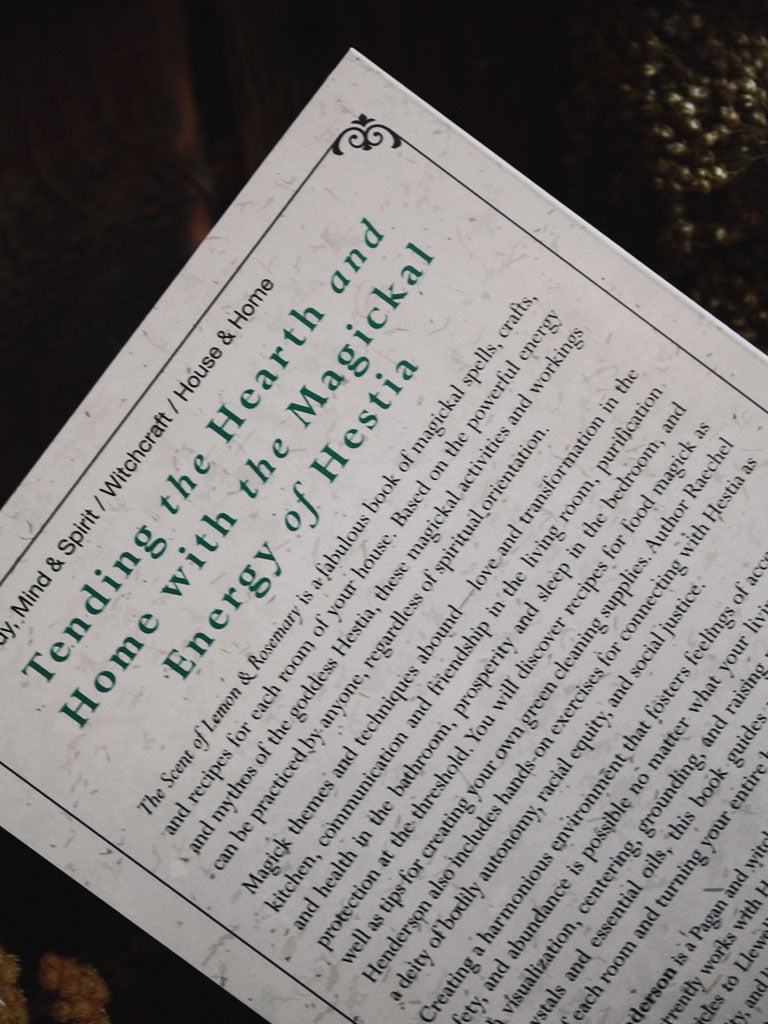 dy, Mind & Spirit / Witchcraft / House & Home
Tending the Hearth and
Home with the Magickal
Energy of Hestia
The Scent of Lemon & Rosemary is a fabulous book of magickal spells, crafts,
and recipes for each room of your house. Based on the powerful energy
and mythos of the goddess Hestia, these magickal activities and workings
can be practiced by anyone, regardless of spiritual orientation.
Magick themes and techniques abound—love and transformation in the
kitchen, communication and friendship in the living room, purification
and health in the bathroom, prosperity and sleep in the bedroom, and
protection at the threshold. You will discover recipes for food magick as
well as tips for creating your own green cleaning supplies. Author Raechel
Henderson also includes hands-on exercises for connecting with Hestia as
a deity of bodily autonomy, racial equity, and social justice.
Creating a harmonious environment that fosters feelings of acce
fety, and abundance is possible no matter what your livin
h visualization, centering, grounding, and raising
ystals and essential oils, this book guides
each room and turning your entire
derson is a Pagan and witc
rrently works with H
cles to Llew
ty, and